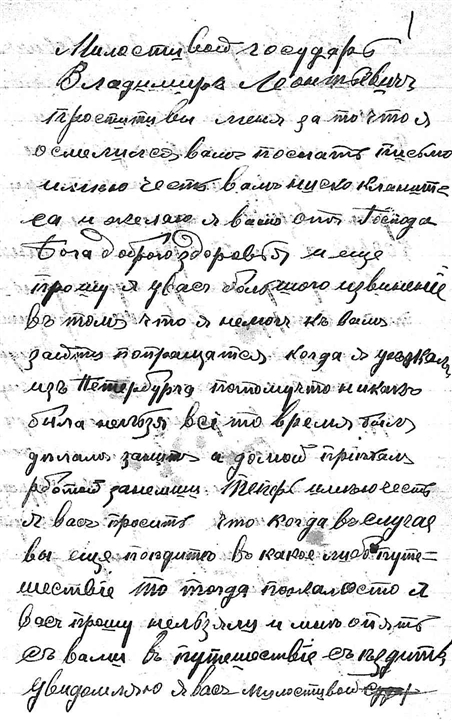 1
Милостивой государь
Владимиръ Леонтьевичъ
простити вы меня за то что я
осмелился вамъ послать письмо
имѣю честь вамъ ниско кланитъ-
ся и желаю я вамъ отъ Господа
Бога доброго здоровья и еще
прошу я у васъ большого извинение
въ томъ что я немогъ къ вамъ
зайти попращатся когда я уезжалъ
изъ Петербурга потомучто никакъ
была нельзя всё то время былъ
дѣламъ занитъ а домой пріехалъ
работой занелши. Теперь имѣю честь
я васъ просить что когда въ случае
вы еще поидити в какое либо путе-
шествіе то тогда пожалосто я
васъ прошу нельзяли и мнѣ опять
съ вами въ путешествіе съѣздить
Увидомляю я васъ милостивой